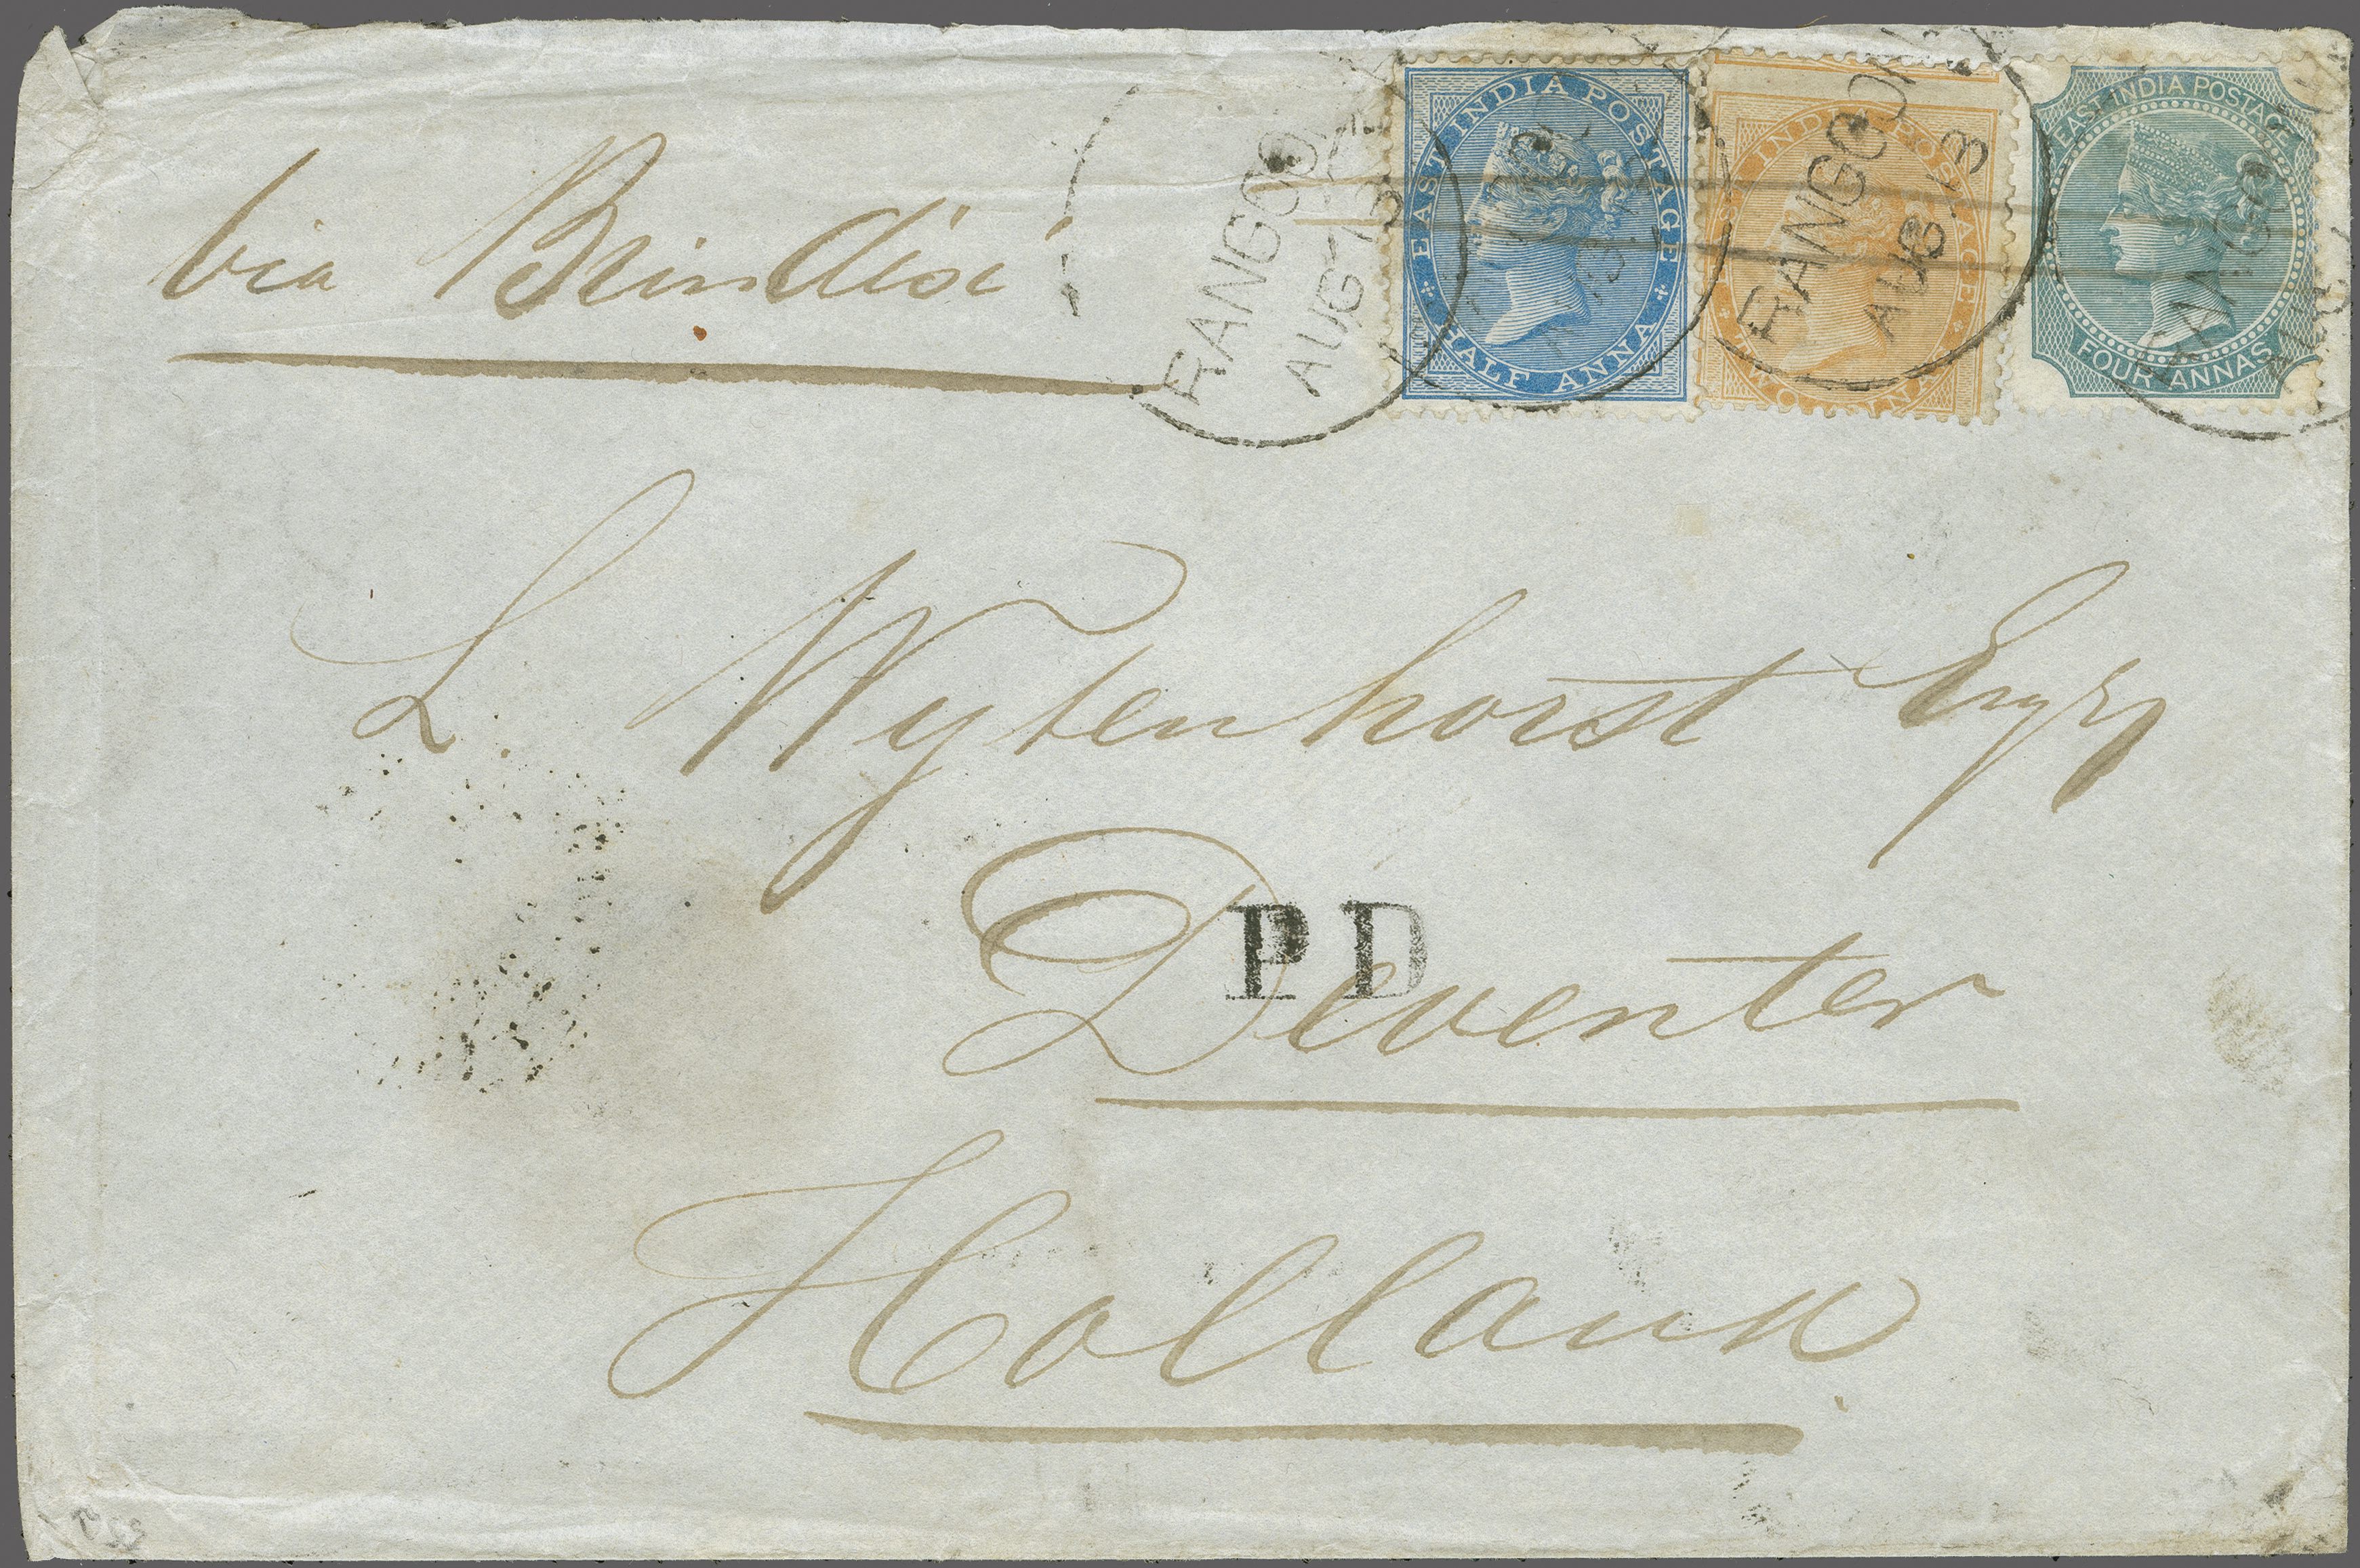 via Brindisi
RANGOON
AUG 13
EAST INDIA POSTAGE
HALF ANNA
RANGOON
AUG 13
INDIA POSTAGE
TWO ANNAS
RANGOON
AUG 13
EAST INDIA POSTAGE
FOUR ANNAS
L. Wytenhorst Esqr
PD
Deventer
Holland